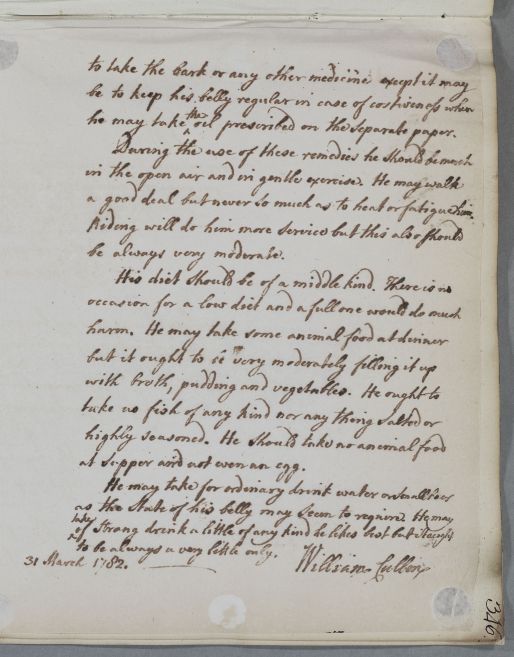 to take the bark or any other medicine except it may
be to keep his belly regular in case of costiveness when
he may take the oil prescribed on the separate paper.
During the use of these remedies he should be much
in the open air and in gentle exercise. He may walk
a good deal but never so much as to heat or fatigue him.
Riding will do him more service but this also should
be always very moderate.
His diet should be of a middle kind. There is no
occasion for a low diet and a full one would do much
harm. He may take some animal food at dinner
but it ought to be very moderately filling it up
with broth, pudding and vegetables. He ought to
take no fish of any kind nor any thing salted or
highly seasoned. He should take no animal food
at supper and not even an egg.
He may take for ordinary drink water or small beer
as the state of his belly may seem to require. He may
take of Strong drink a little of any kind he likes best but it ought
to be always a very little only.
31 March 1782. William Cullen
316